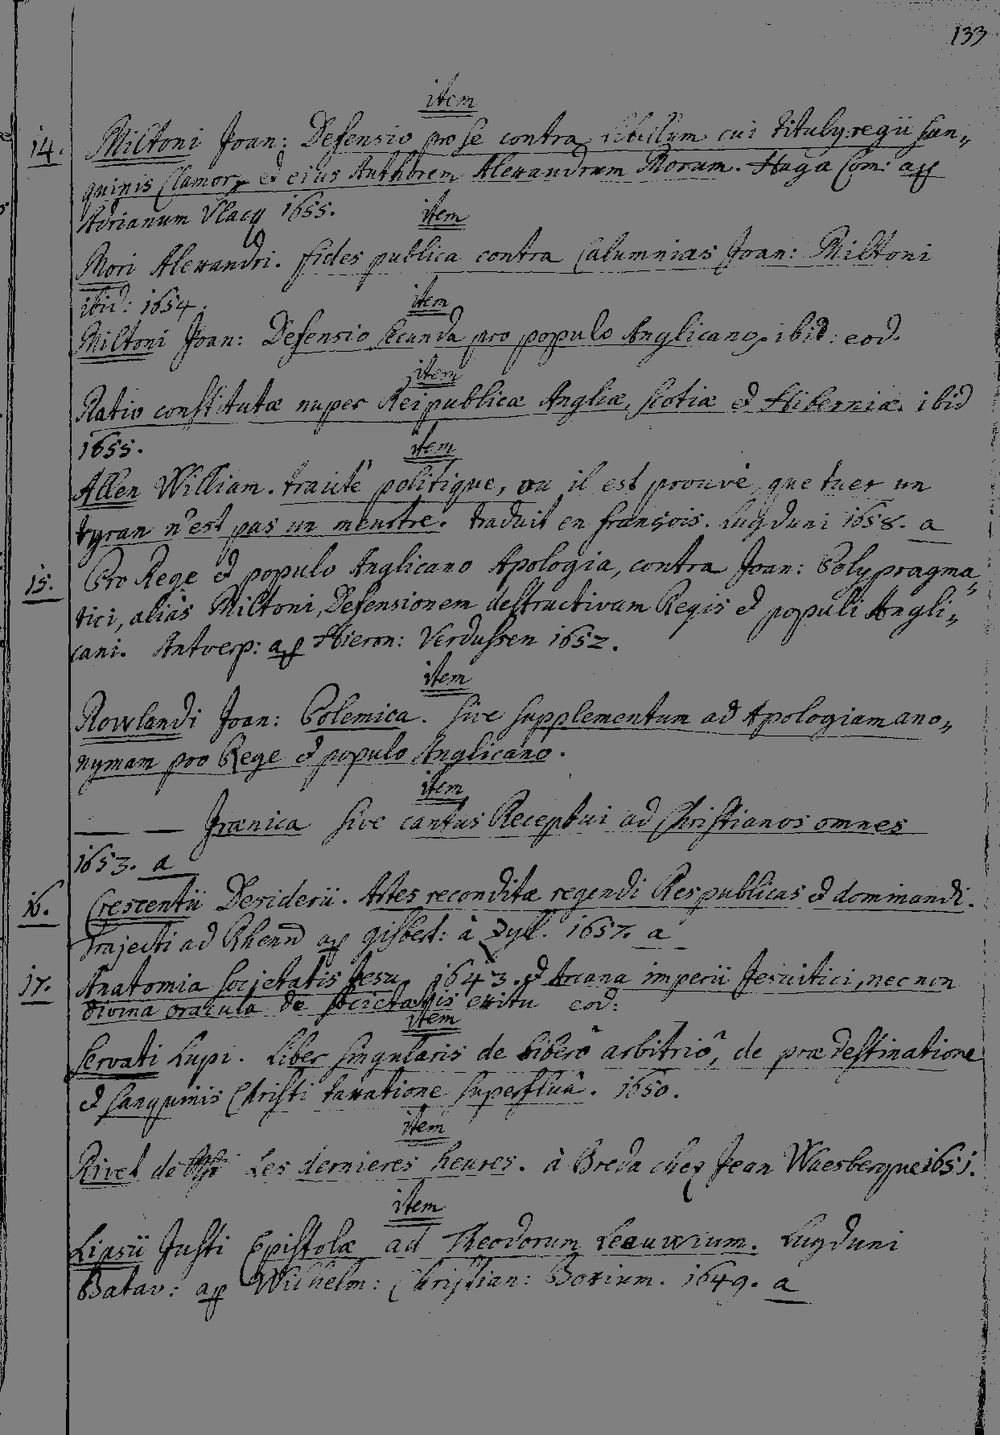 133
item
14. Miltoni Joan: Defensio pro se contra libellum cui titulus regii san„
guinis Clamor et eius Authorem Alexandrum Morum. Haga Com: ap
Adrianum Vlacq 1655.
item
Mori Alexandri. fides publica contra Calumnias Joan: Miltoni
ibid: 1654.
item
Miltoni Joan: Defensio secunda pro populo Anglicano. ibid: eod.
item
Ratio constitutæ nuper Reipublicæ Angliæ, Scotiæ et Hiberniæ. ibid
1655.
item
Allen William. traité politique, ou il est prouvé que tuer un
tyran n'est pas un meurtre. traduit en françois. Lugduni 1658. a
15. Pro Rege et populo Anglicano Apologia, contra Joan: Polypragma„
tici, alias Miltoni, Defensionem destructivam Regis et populi Angli„
cani. Antverp: ap Hieron: Verdussen 1652.
item
Rowlandi Joan: Polemica. sive supplementum ad Apologiam ano„
nymam pro Rege et populo Anglicano.
item
— — Irænica sive cantus Receptui ad Christianos omnes
1653. a
16. Crescentii Desiderii. Artes reconditæ regendi Respublicas et dominandi.
Trajecti ad Rhenū ap gisbert: à Zyll. 1657. a
17. Anatomia Societatis Jesu. 1643. et Arcana imperii Jesuitici, nec non
divina oracula de societatis exitu eod:
item
Servati Lupi. Liber singularis de liberô arbitriô, de prædestinatione
et sanguinis Christi taxatione superfluâ. 1650.
item
Rivet de Les dernieres heures. à Breda chez Jean Waesbergue 1651.
item
Lipsii Justi Epistolæ ad Theodorum Leeuwium. Lugduni
Batav: ap Wilhelm: Christian: Boxium. 1649. a